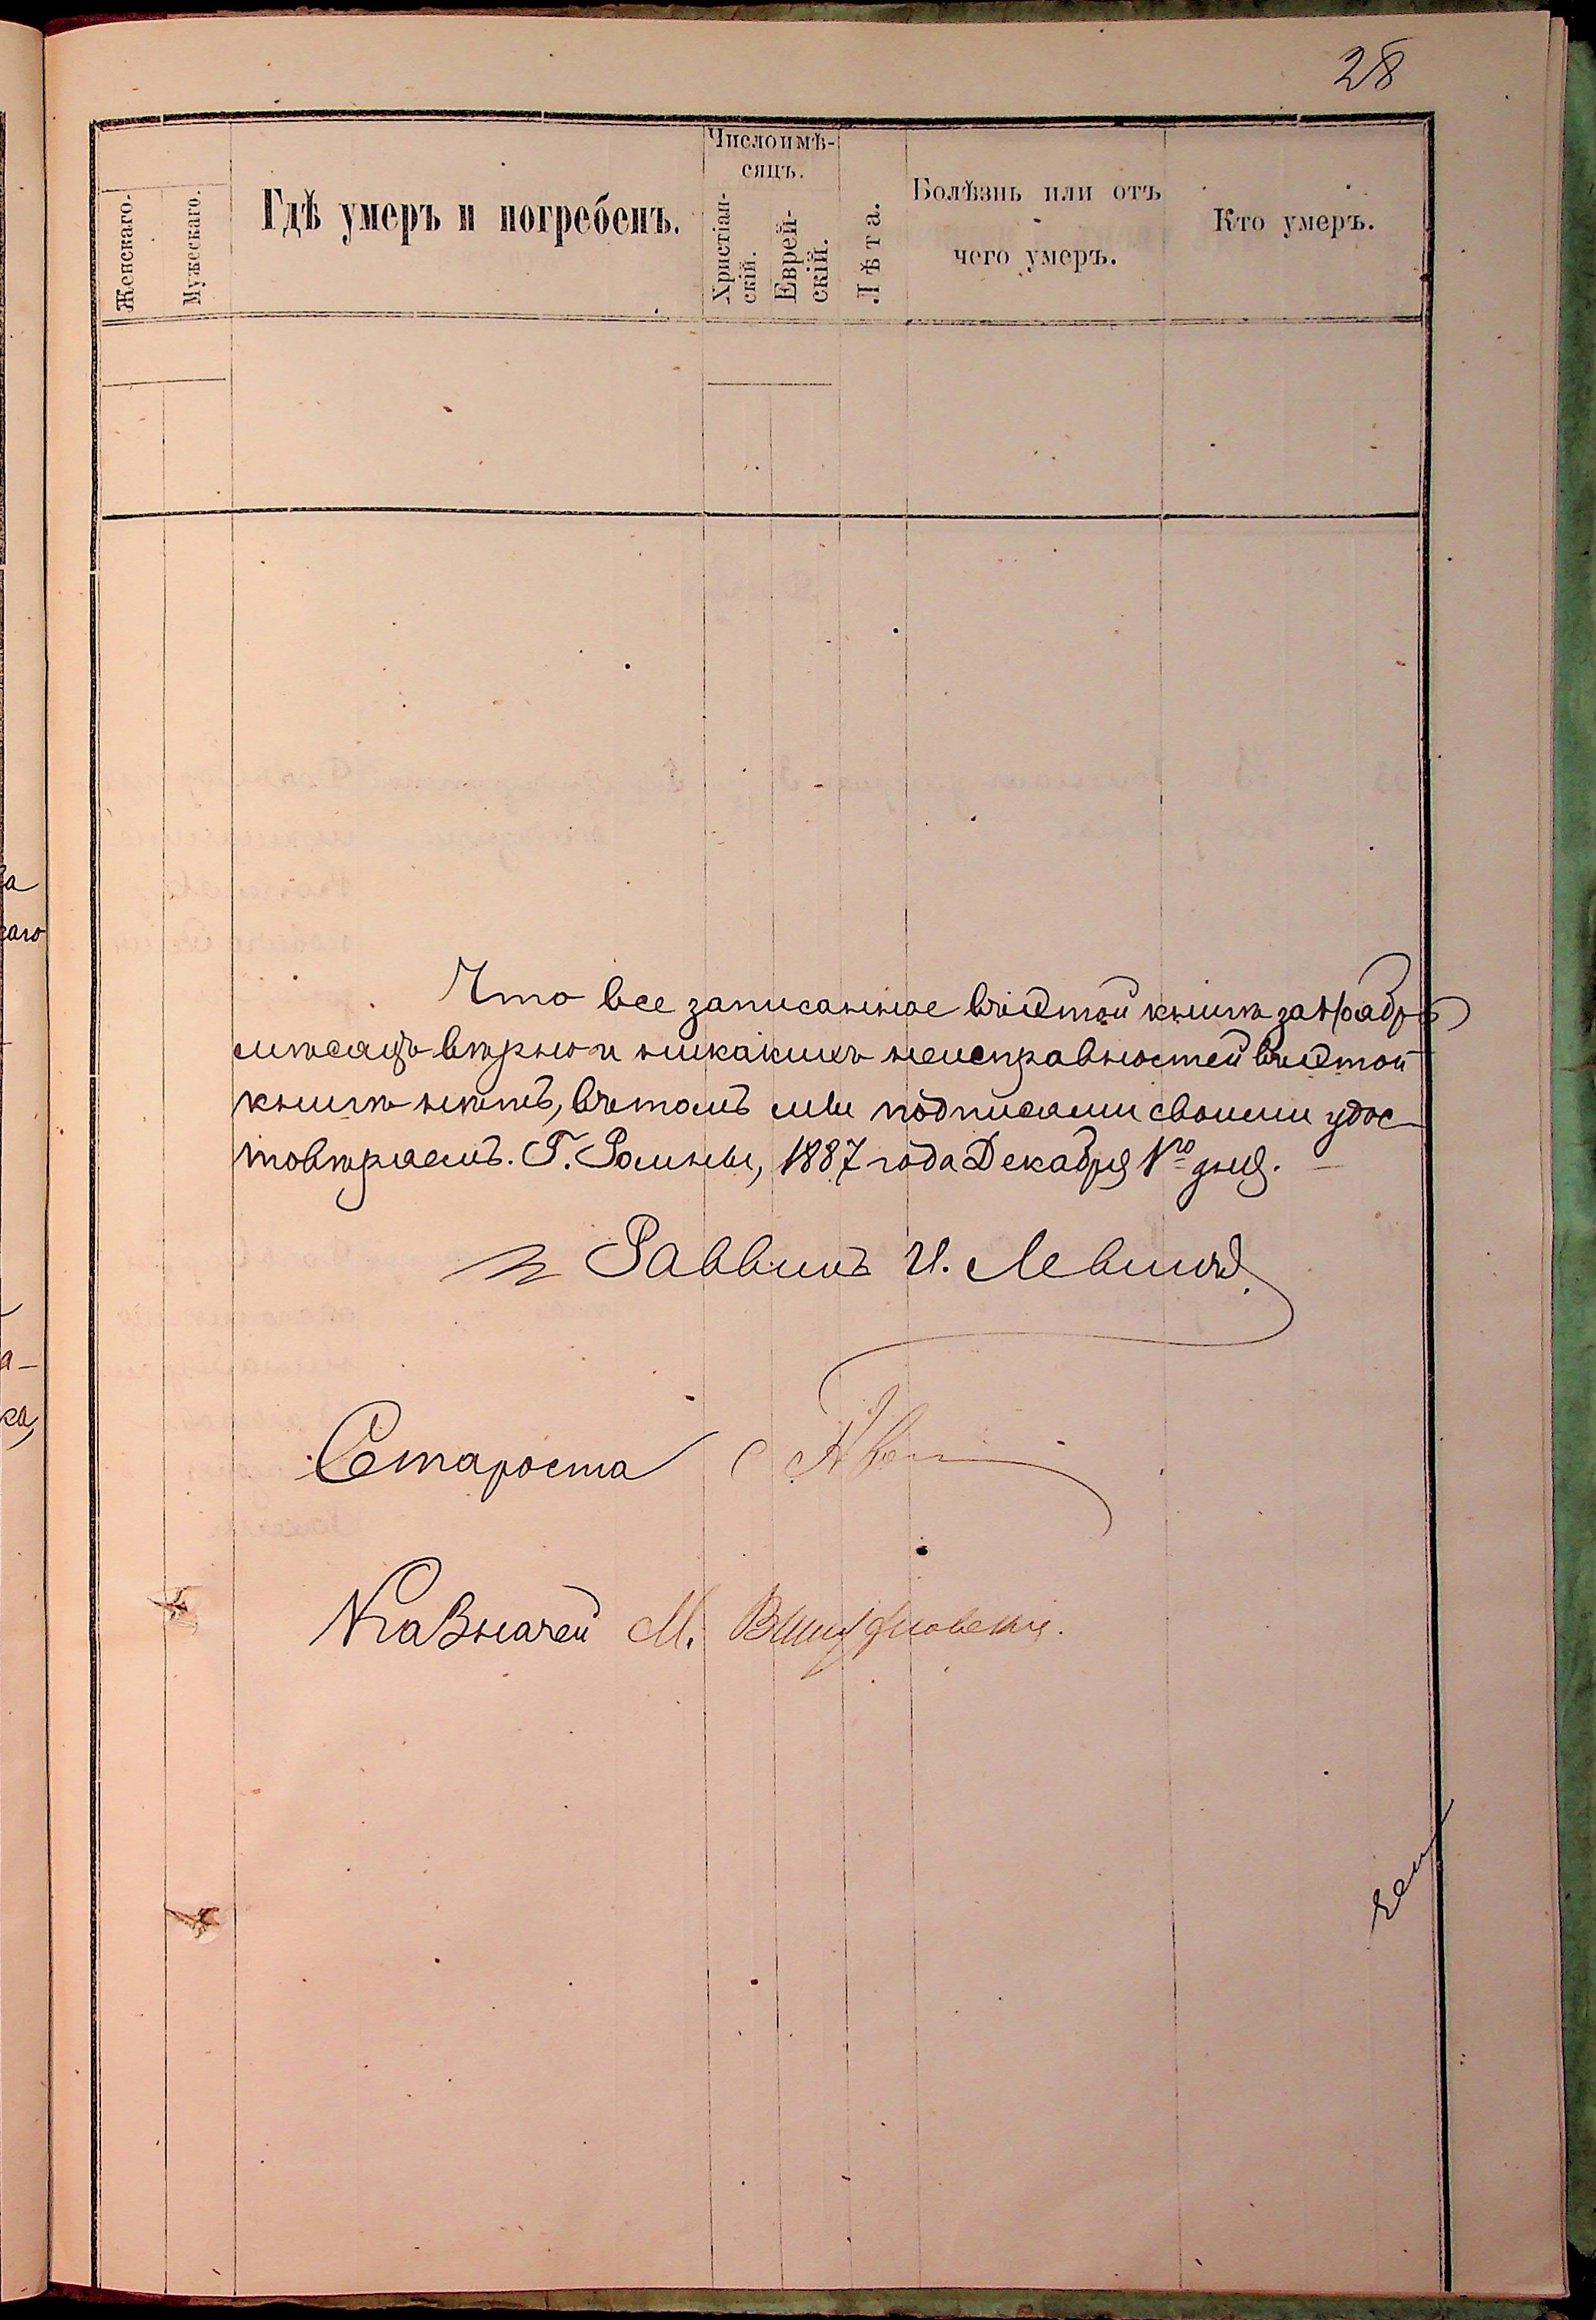 28
Женскаго.
Мужескаго.
Гдѣ умеръ и погребенъ.
Число и мѣ-
сяцъ.
Христіан-
скій.
Еврей-
скій.
Лѣта.
Болѣзнь или отъ
чего умеръ.
Кто умеръ.
Что все записанное въ этой книгѣ за Ноябрь
мѣсяцъ вѣрно и никакихъ неисправностей въ этой
книгѣ нѣтъ, въ томъ мы подписами своими удос-
товѣряемъ. Г. Ромны, 1887 года Декабря 1го дня.
Раввинъ И. Левинъ
Староста
Казначей М.